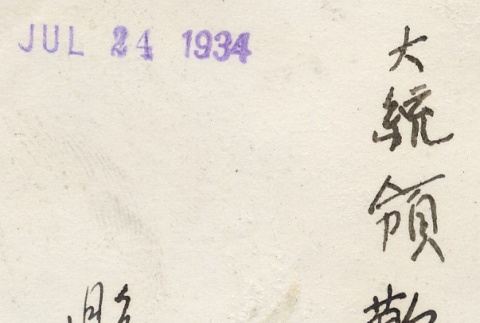 JUL 24 1934
大統領歓